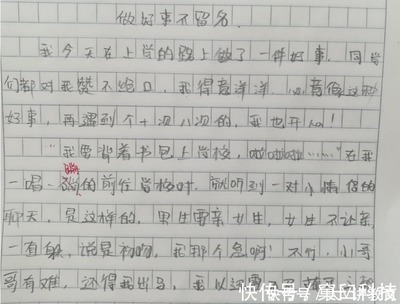 做好事不留名
我今天在上学的路上做了一件好事,同学
们都对我赞不绝口,我得意洋洋,心
好事,再遇到个十次八次的,我也开心!
"我要背着书包上学校,啦啦啦……"在我
一唱一 的前往学校时,就听到一对小情侣的
聊天,是这样的,男生要亲女生,女生不让亲,
一直躲,说是初吻,我那个急啊!不行,小哥
哥有难,还得我出马,我以迅雷不
快传号/泉立科技